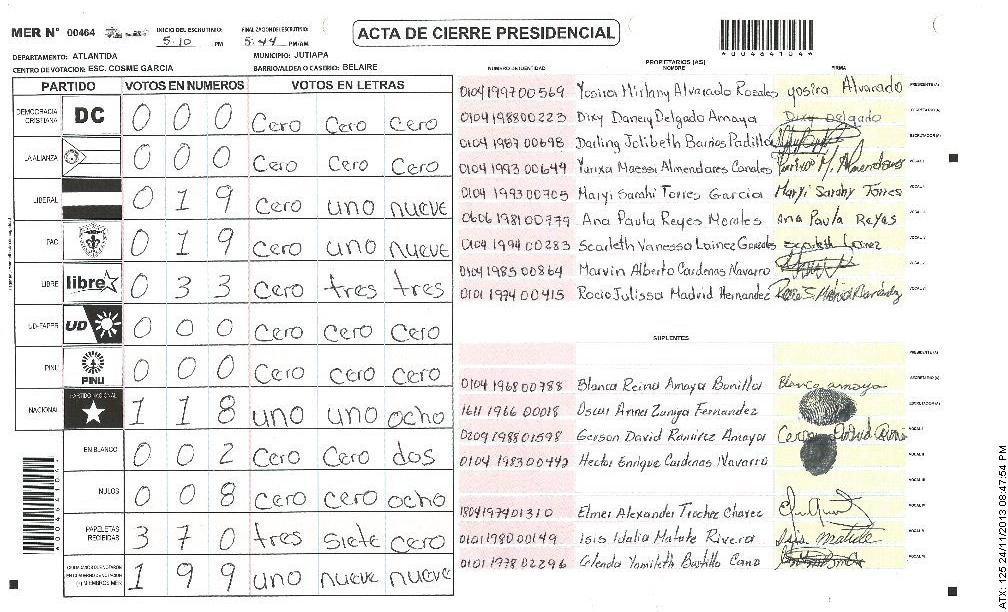 MER N° 00464 INICIO DEL ESCRUTINIO: 5:10 PM FINALIZACION DEL ESCRUTINIO: 5:44 PM/AM
ACTA DE CIERRE PRESIDENCIAL
DEPARTAMENTO: ATLANTIDA MUNICIPIO: JUTIAPA
CENTRO DE VOTACION: ESC. COSME GARCIA BARRIO/ALDEA O CASERIO: BELAIRE
PARTIDO VOTOS EN NUMEROS VOTOS EN LETRAS
DEMOCRACIA CRISTIANA DC 0 0 0 Cero Cero Cero
LA ALIANZA 0 0 0 Cero Cero Cero
LIBERAL 0 1 9 Cero uno nueve
PAC 0 1 9 Cero uno nueve
LIBRE libre 0 3 3 Cero tres tres
UD-FAPER UD 0 0 0 Cero Cero Cero
PINU PINU 0 0 0 Cero Cero Cero
NACIONAL PARTIDO NACIONAL 1 1 8 uno uno ocho
EN BLANCO 0 0 2 Cero Cero dos
NULOS 0 0 8 Cero cero ocho
PAPELETAS RECIBIDAS 3 7 0 tres siete cero
1 9 9 uno nueve nueve
PROPIETARIOS (AS)
NUMERO DE IDENTIDAD NOMBRE FIRMA
0104 1997 00569 Yosira Mirlany Alvarado Rosales yosira Alvarado PRESIDENTE (A)
0104 1988 00223 Dixy Daney Delgado Amaya Dixy Delgado SECRETARIO (A)
0104 1987 00698 Darling Jolibeth Barrios Padilla ESCRUTADOR (A)
0104 1993 00644 Yurixa Maessi Almendares Canales VOCAL I
0104 1993 00705 Maryi Sarahi Torres Garcia Maryi Sarahy Torres
0606 1981 00779 Ana Paula Reyes Morales Ana Paula Reyes
0104 1994 00283 Scarleth Vanessa Lainez Gonzales
0104 1985 00864 Marvin Alberto Cardenas Navarro
0101 1974 00415 Rocio Julissa Madrid Hernandez
SUPLENTES
PRESIDENTE (A)
0104 1968 00788 Blanca Reina Amaya Bonilla Blanca amaya SECRETARIO (A)
1611 1966 00018 Oscar Annel Zuniga Fernandez ESCRUTADOR (A)
0209 1988 01598 Gerson David Ramirez Amaya VOCAL I
0104 1983 00442 Hector Enrique Cardenas Navarro VOCAL II
VOCAL III
1804 1974 01310 Elmer Alexander Trochez Chavez
0101 1980 00149 Isis Idalia Matute Rivera Isis Matute
0101 1978 02296 Glenda Yamileth Bustillo Cano
ATX: 125 24/11/2013 08:47:54 PM